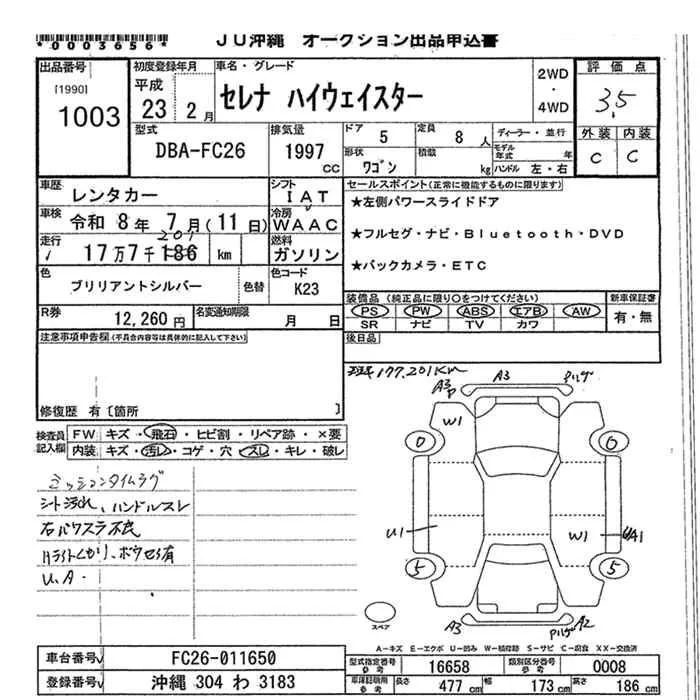 *0003656*
JU沖縄 オークション出品申込書
出品番号
[1990]
1003
初度登録年月
平成
23 2月
車名・グレード
セレナ ハイウェイスター
2WD
・
4WD
評価点
3.5
外装 内装
C C
型式
DBA-FC26
排気量
1997
CC
ドア
5
定員
8人
形状
ワゴン
積載
kg
ディーラー・並行
モデル年式 年
ハンドル 左・右
車歴
レンタカー
シフト
IAT
車検
令和 8年 7月(11日)
冷房
WAAC
走行
17万7千186 km
201
燃料
ガソリン
色
ブリリアントシルバー
色替
色コード
K23
R券
12,260円
名変通知期限
月 日
セールスポイント(正常に機能するものに限ります)
★左側パワースライドドア
★フルセグ・ナビ・Bluetooth・DVD
★バックカメラ・ETC
装備品(純正品に限り○をつけてください)
PS PW ABS エアB AW
SR ナビ TV カワ
新車保証書
有・無
後日品
注意事項申告欄(不具合内容等は具体的に記入して下さい)
修復歴 有〔箇所 〕
検査員記入欄
FW キズ・飛石・ヒビ割・リペア跡・×要
内装 キズ・汚レ・コゲ・穴・スレ・キレ・破レ
ミッションタイムラグ
シート汚れ、ハンドルスレ
右パワスラ不良
Hライトくもり、ボウセイ有
U.A.
177,201Km
A3
A3
P
W1
0
0
U1
W1
5
5
スペア
A3
A2
A-キズ E-エクボ U-凹み W-補修跡 S-サビ C-腐食 XX-交換済
車台番号
FC26-011650
登録番号
沖縄 304 わ 3183
型式指定番号
参考
16658
類別区分番号
参考
0008
車庫証明用
参考
長さ
477 cm
幅
173 cm
高さ
186 cm